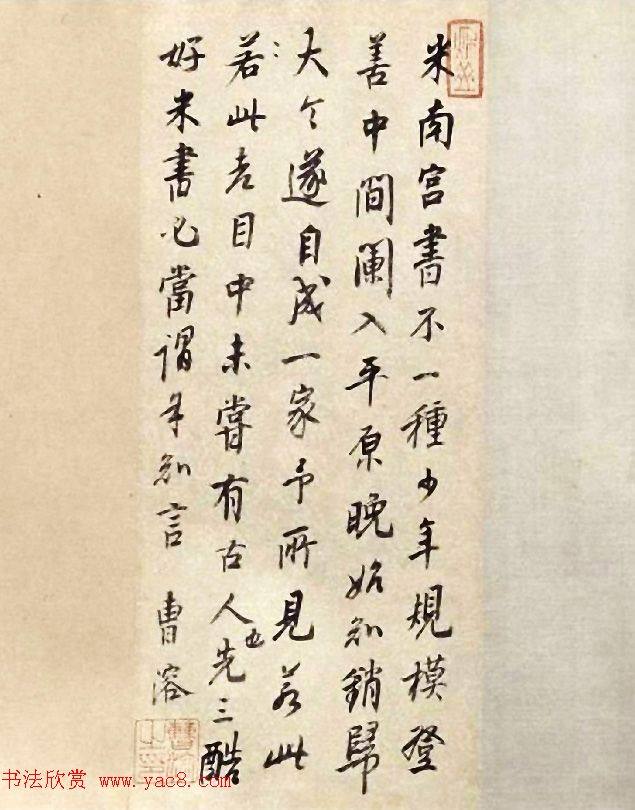 米南宫書不一種少年規模登
善中間闌入平原晚始知銷歸
大令遂自成一家予所見若此
若此老目中未嘗有古人也先三酷
好米書必當謂知言 曹溶
书法欣赏 www.yac8.com